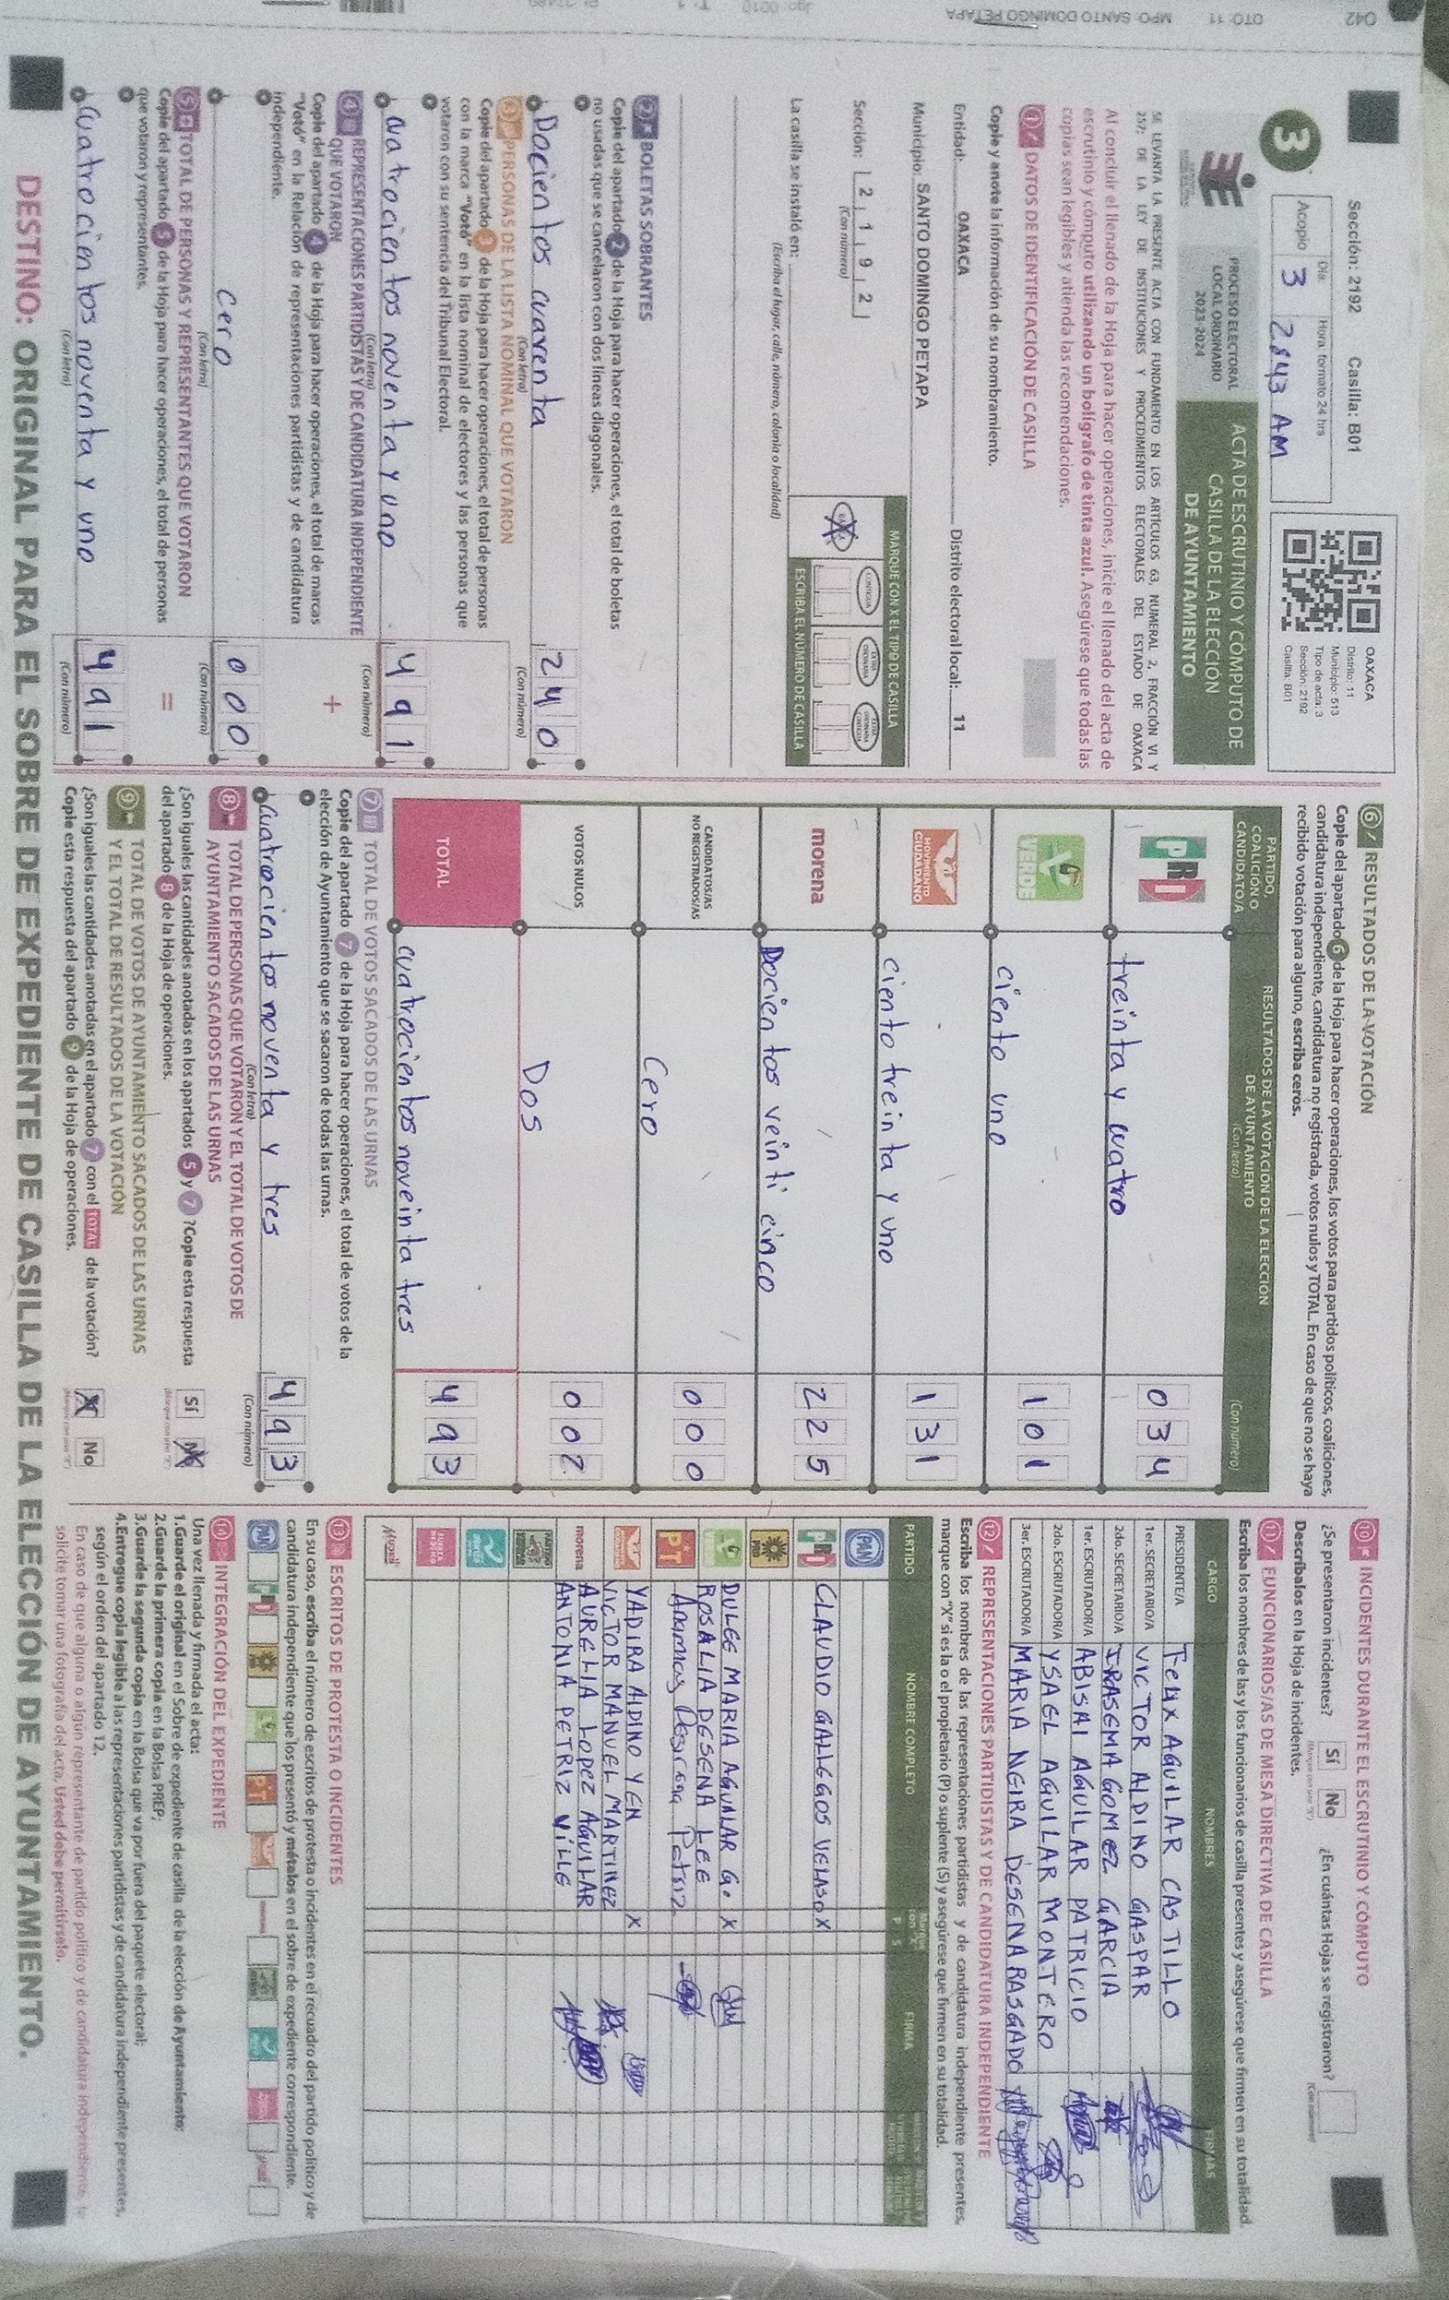 Sección: 2192 Casilla: B01
3
Acopio
Día:
3
Hora, formato 24 hrs
2:43 AM
OAXACA
Distrito: 11
Municipio: 513
Tipo de acta: 3
Sección: 2192
Casilla: B01
PROCESO ELECTORAL
LOCAL ORDINARIO
2023-2024
ACTA DE ESCRUTINIO Y CÓMPUTO DE
CASILLA DE LA ELECCIÓN
DE AYUNTAMIENTO
SE LEVANTA LA PRESENTE ACTA CON FUNDAMENTO EN LOS ARTÍCULOS 63, NUMERAL 2, FRACCIÓN VI Y
257; DE LA LEY DE INSTITUCIONES Y PROCEDIMIENTOS ELECTORALES DEL ESTADO DE OAXACA
Al concluir el llenado de la Hoja para hacer operaciones, inicie el llenado del acta de
escrutinio y cómputo utilizando un bolígrafo de tinta azul. Asegúrese que todas las
copias sean legibles y atienda las recomendaciones.
1 DATOS DE IDENTIFICACIÓN DE CASILLA
Copie y anote la información de su nombramiento.
Entidad: OAXACA Distrito electoral local: 11
Municipio: SANTO DOMINGO PETAPA
Sección: 2 1 9 2
(Con número)
MARQUE CON X EL TIPO DE CASILLA
ESCRIBA EL NÚMERO DE CASILLA
La casilla se instaló en:
(Escriba el lugar, calle, número, colonia o localidad)
2 BOLETAS SOBRANTES
Copie del apartado 2 de la Hoja para hacer operaciones, el total de boletas
no usadas que se cancelaron con dos líneas diagonales.
Docientos cuarenta 240
(Con letra) (Con número)
3 PERSONAS DE LA LISTA NOMINAL QUE VOTARON
Copie del apartado 3 de la Hoja para hacer operaciones, el total de personas
con la marca "Votó" en la lista nominal de electores y las personas que
votaron con su sentencia del Tribunal Electoral.
cuatrocientos noventa y uno 491
(Con letra) (Con número)
4 REPRESENTACIONES PARTIDISTAS Y DE CANDIDATURA INDEPENDIENTE
QUE VOTARON
Copie del apartado 4 de la Hoja para hacer operaciones, el total de marcas
"Votó" en la Relación de representaciones partidistas y de candidatura
independiente.
+
cero 000
(Con letra) (Con número)
5 TOTAL DE PERSONAS Y REPRESENTANTES QUE VOTARON
Copie del apartado 5 de la Hoja para hacer operaciones, el total de personas
que votaron y representantes.
=
cuatrocientos noventa y uno 491
(Con letra) (Con número)
6 RESULTADOS DE LA VOTACIÓN
Copie del apartado 6 de la Hoja para hacer operaciones, los votos para partidos políticos, coaliciones,
candidatura independiente, candidatura no registrada, votos nulos y TOTAL. En caso de que no se haya
recibido votación para alguno, escriba ceros.
PARTIDO,
COALICIÓN O
CANDIDATO/A
RESULTADOS DE LA VOTACIÓN DE LA ELECCIÓN
DE AYUNTAMIENTO
(Con letra) (Con número)
PRI treinta y cuatro 034
VERDE ciento uno 101
MOVIMIENTO CIUDADANO ciento treinta y uno 131
morena Docientos veinti cinco 225
CANDIDATOS/AS
NO REGISTRADOS/AS Cero 000
VOTOS NULOS Dos 002
TOTAL cuatrocientos noveinta tres 493
7 TOTAL DE VOTOS SACADOS DE LAS URNAS
Copie del apartado 7 de la Hoja para hacer operaciones, el total de votos de la
elección de Ayuntamiento que se sacaron de todas las urnas.
Cuatrocientos noventa y tres 493
(Con letra) (Con número)
8 TOTAL DE PERSONAS QUE VOTARON Y EL TOTAL DE VOTOS DE
AYUNTAMIENTO SACADOS DE LAS URNAS
¿Son iguales las cantidades anotadas en los apartados 5 y 7 ? Copie esta respuesta
del apartado 8 de la Hoja de operaciones.
Sí No
9 TOTAL DE VOTOS DE AYUNTAMIENTO SACADOS DE LAS URNAS
Y EL TOTAL DE RESULTADOS DE LA VOTACIÓN
¿Son iguales las cantidades anotadas en el apartado 7 con el TOTAL de la votación?
Copie esta respuesta del apartado 9 de la Hoja de operaciones.
Sí No
10 INCIDENTES DURANTE EL ESCRUTINIO Y CÓMPUTO
¿Se presentaron incidentes? Sí No ¿En cuántas Hojas se registraron?
Descríbalos en la Hoja de incidentes.
11 FUNCIONARIOS/AS DE MESA DIRECTIVA DE CASILLA
Escriba los nombres de las y los funcionarios de casilla presentes y asegúrese que firmen en su totalidad.
CARGO NOMBRES FIRMAS
PRESIDENTE/A FELIX AGUILAR CASTILLO
1er. SECRETARIO/A VICTOR ALDINO GASPAR
2do. SECRETARIO/A IRASEMA GOMEZ GARCIA
1er. ESCRUTADOR/A ABISAI AGUILAR PATRICIO
2do. ESCRUTADOR/A YSAEL AGUILAR MONTERO
3er. ESCRUTADOR/A MARIA NEIRA DESENA RASGADO
12 REPRESENTACIONES PARTIDISTAS Y DE CANDIDATURA INDEPENDIENTE
Escriba los nombres de las representaciones partidistas y de candidatura independiente presentes,
marque con "X" si es la o el propietario (P) o suplente (S) y asegúrese que firmen en su totalidad.
PARTIDO NOMBRE COMPLETO P S FIRMA
PAN
PRI CLAUDIO GALLEGOS VELASO X
PRD
VERDE DULCE MARIA AGUILAR G. X
ROSALIA DESENA LEE
PT
YADIRA ALDINO YEN X
VICTOR MANUEL MARTINEZ
morena AURELIA LOPEZ AGUILAR
ANTONIA PETRIZ VILLE
13 ESCRITOS DE PROTESTA O INCIDENTES
En su caso, escriba el número de escritos de protesta o incidentes en el recuadro del partido político y de
candidatura independiente que los presentó y métalos en el sobre de expediente correspondiente.
14 INTEGRACIÓN DEL EXPEDIENTE
Una vez llenada y firmada el acta:
1.Guarde el original en el Sobre de expediente de casilla de la elección de Ayuntamiento;
2.Guarde la primera copia en la Bolsa PREP;
3.Guarde la segunda copia en la Bolsa que va por fuera del paquete electoral;
4.Entregue copia legible a las representaciones partidistas y de candidatura independiente presentes,
según el orden del apartado 12.
En caso de que alguna o algún representante de partido político y de candidatura independiente, le
solicite tomar una fotografía del acta, Usted debe permitírselo.
DESTINO: ORIGINAL PARA EL SOBRE DE EXPEDIENTE DE CASILLA DE LA ELECCIÓN DE AYUNTAMIENTO.